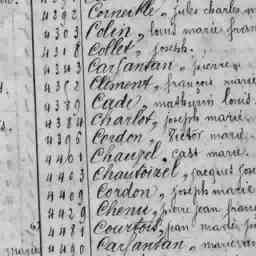 4292 Corneille, jules charles m
4303 Colin, louis marie fran
4318 Collet, joseph.
4343 Carfantan, pierre
4352 Clément, françois marie
4380 Cade, mathurin louis
4384 Charlot, joseph marie
4395 Cordon, Victor marie.
4401 Chauvel, cast marie.
4403 Chautoirel, jacques jose
4409 Cordon, joseph marie
4429 Chenu, pierre jean franc
4481 Courtois, jean marie jo
marie 4490 Carfantan, marie